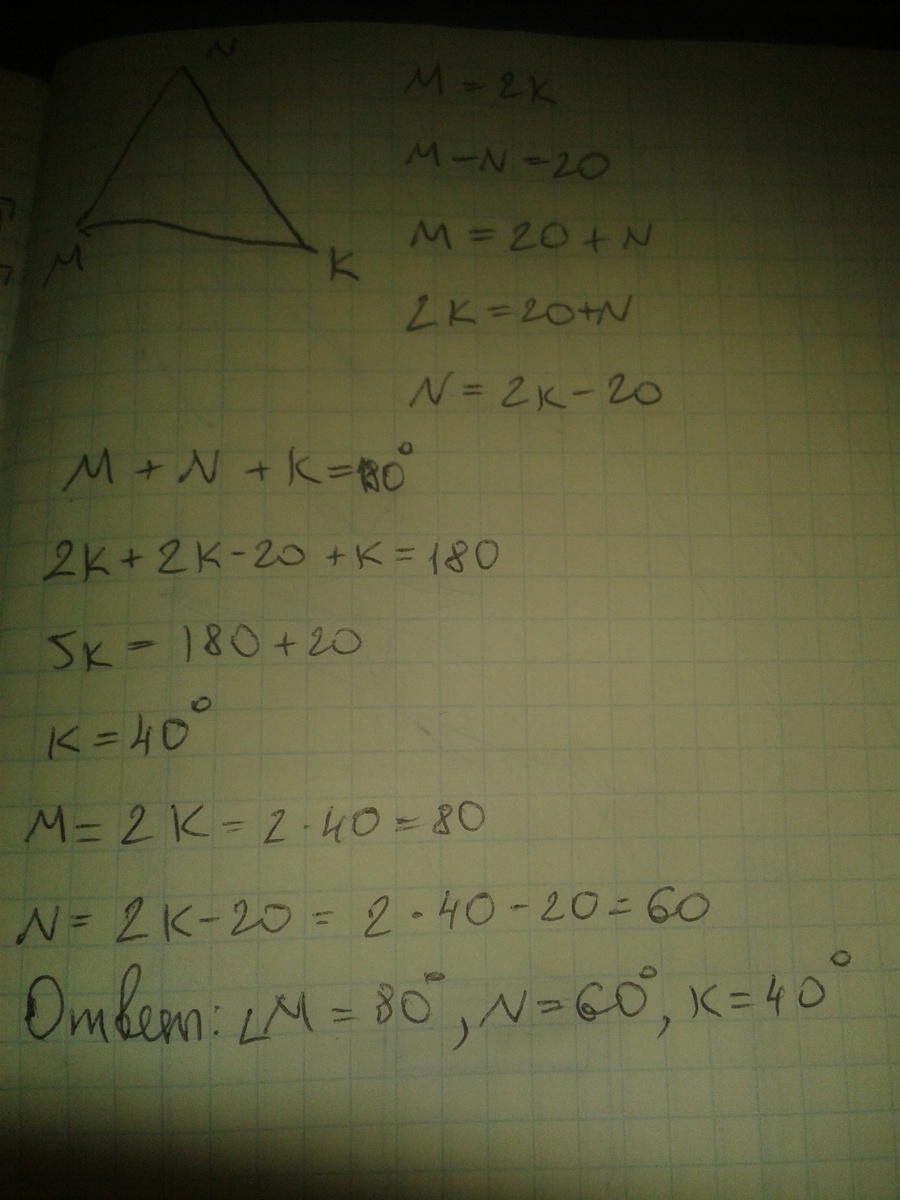 N
M
K
M = 2K
M - N = 20
M = 20 + N
2K = 20+N
N = 2K - 20
M + N + K = 180°
2K + 2K - 20 + K = 180
5K = 180 + 20
K = 40°
M = 2K = 2 · 40 = 80
N = 2K - 20 = 2 · 40 - 20 = 60
Ответ: ∠M = 80°, N = 60°, K = 40°